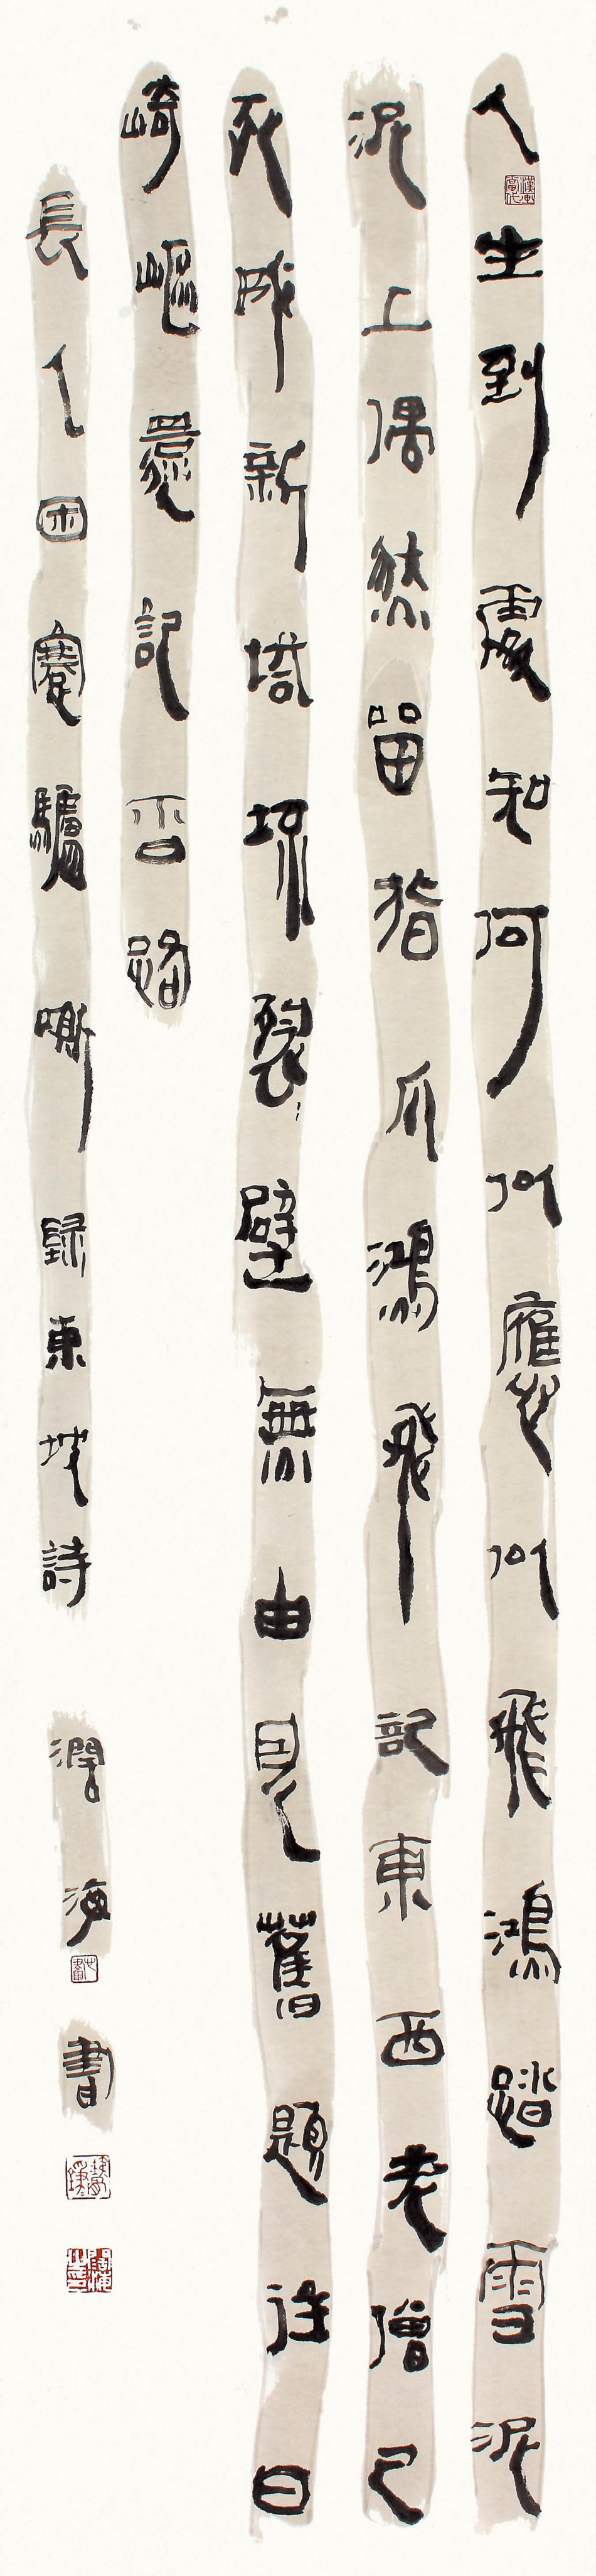 人生到處知何似應似飛鴻踏雪泥
泥上偶然留指爪鴻飛記東西老僧已
死成新塔坏裂壁無由見舊題往日
崎嶇還記否路
長人困蹇驢嘶録東坡詩潤海書